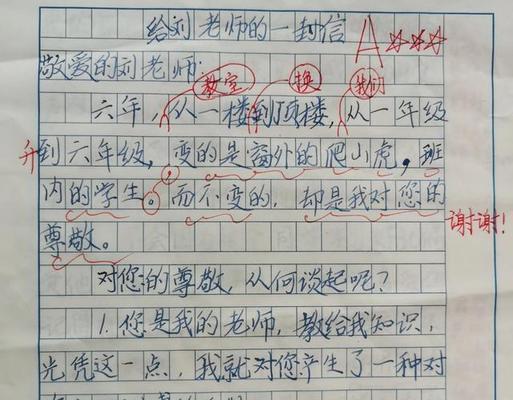 给刘老师的一封信
A☆☆☆
敬爱的刘老师:
教室 换 我们
六年，从一楼到顶楼，从一年级
升到六年级，变的是窗外的爬山虎，班
内的学生。而不变的，却是我对您的
谢谢！
尊敬。
对您的尊敬，从何谈起呢？
1.您是我的老师，教给我知识，
光凭这一点，我就对您产生了一种对